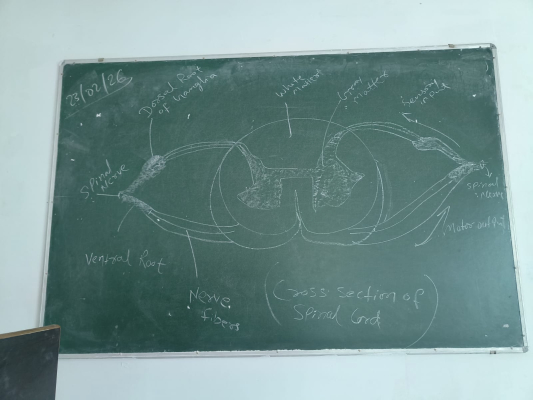 23/02/26
Dorsal Root
of Ganglia
White
matter
Grey
matter
Sensory
input
Spinal
Nerve
Spinal
nerve
Ventral Root
Motor output
Nerve
fibers
(Cross section of
Spinal Cord)